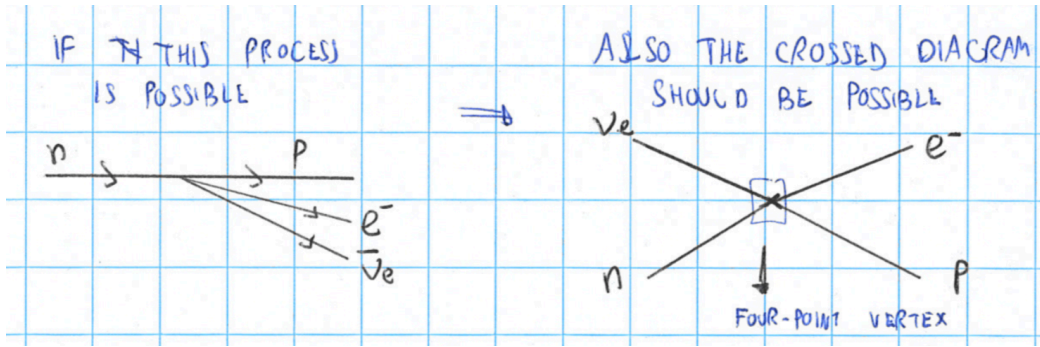 IF THIS PROCESS
IS POSSIBLE
⇒
ALSO THE CROSSED DIAGRAM
SHOULD BE POSSIBLE
n
p
e⁻
ν̄e
νe
e⁻
n
p
FOUR-POINT VERTEX